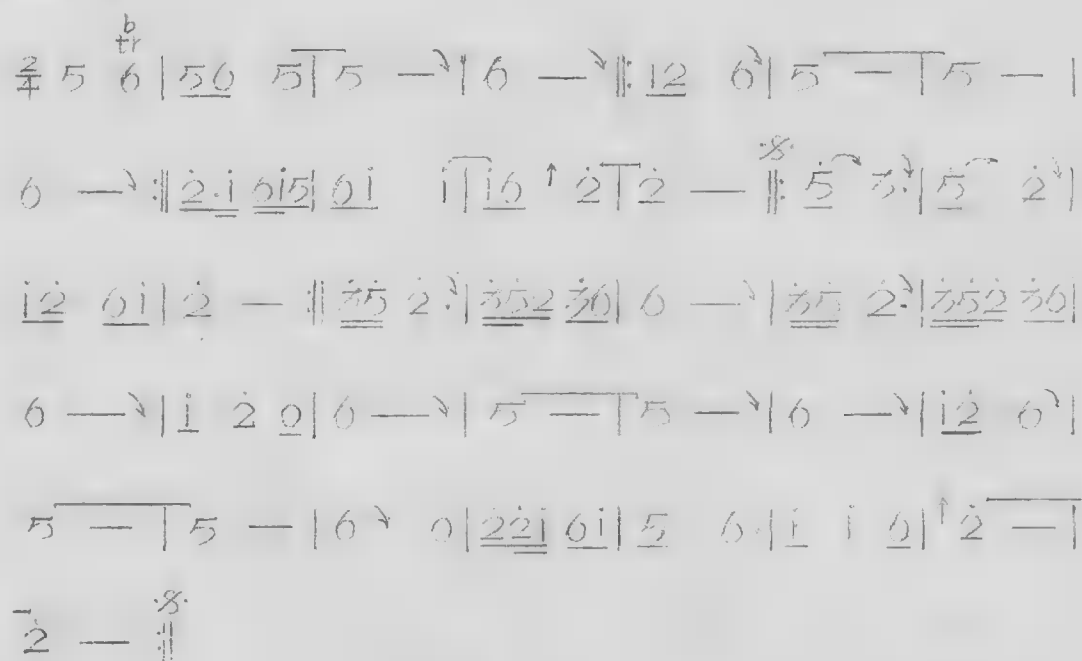 2/4 5 6 | 56 5 | 5 — | 6 — ‖: i2 6 | 5 — | 5 — |
6 — :‖ 2̇·i̇ 6i̇5 | 6i̇ i̇ | i̇6 ↑ 2̇ | 2̇ — ‖: 5̇ 3̇· | 5̇ 2̇ |
i̇2̇ 6i̇ | 2̇ — :‖ 3̇5̇ 2̇· | 3̇5̇2 3̇6 | 6 — | 3̇5̇ 2̇· | 3̇5̇2̇ 3̇6 |
6 — | i̇ 2̇ 0 | 6 — | 5 — | 5 — | 6 — | i̇2̇ 6 |
5 — | 5 — | 6 0 | 2̇2̇i̇ 6i̇ | 5 6· | i̇ i̇ 6 | ↑ 2̇ — |
2̇ — :‖